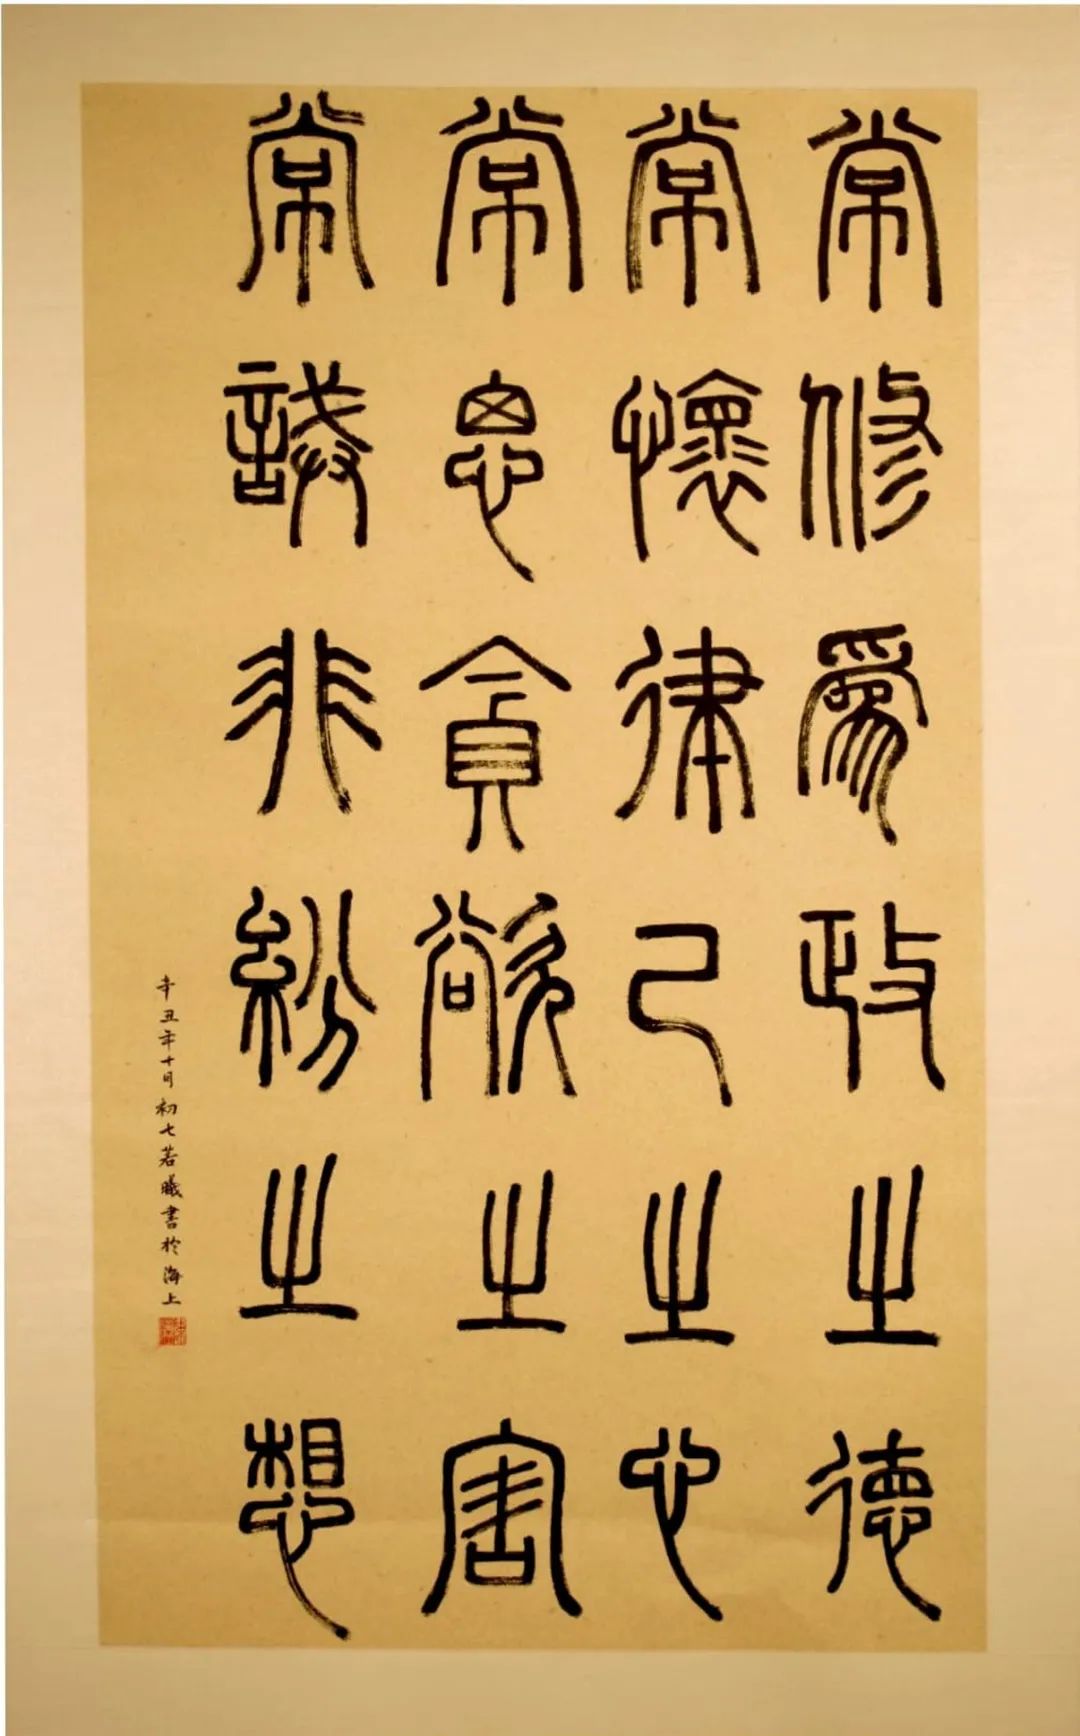 常修爲政之德
常懷律己之心
常思貪欲之害
常誡非紛之想
辛丑年十月初七若曦書於海上